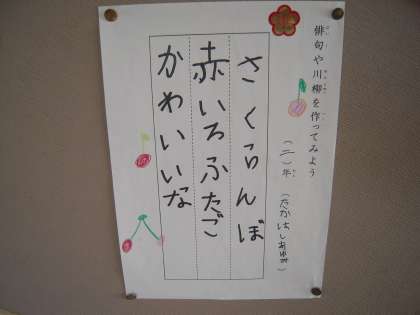 俳句や川柳を作ってみよう
(二)年 (たかはしあゆみ)
さくらんぼ
赤いろふたご
かわいいな